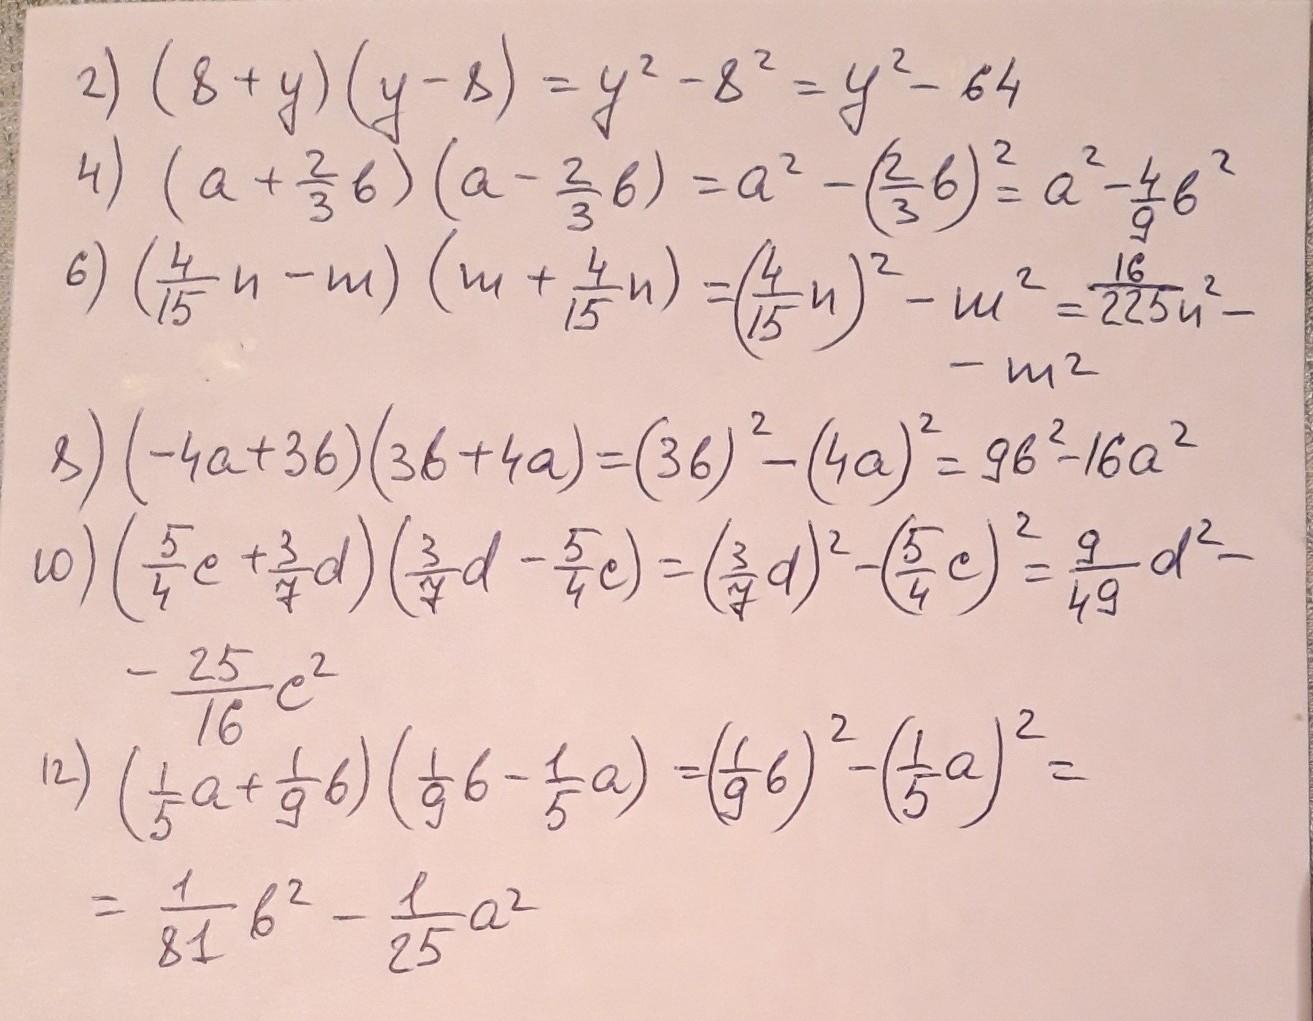 2) (8 + y)(y - 8) = y² - 8² = y² - 64
4) (a + 2/3 b)(a - 2/3 b) = a² - (2/3 b)² = a² - 4/9 b²
6) (4/15 n - m)(m + 4/15 n) = (4/15 n)² - m² = 16/225 n² -
- m²
8) (-4a + 3b)(3b + 4a) = (3b)² - (4a)² = 9b² - 16a²
10) (5/4 c + 3/7 d)(3/7 d - 5/4 c) = (3/7 d)² - (5/4 c)² = 9/49 d² -
- 25/16 c²
12) (1/5 a + 1/9 b)(1/9 b - 1/5 a) = (1/9 b)² - (1/5 a)² =
= 1/81 b² - 1/25 a²